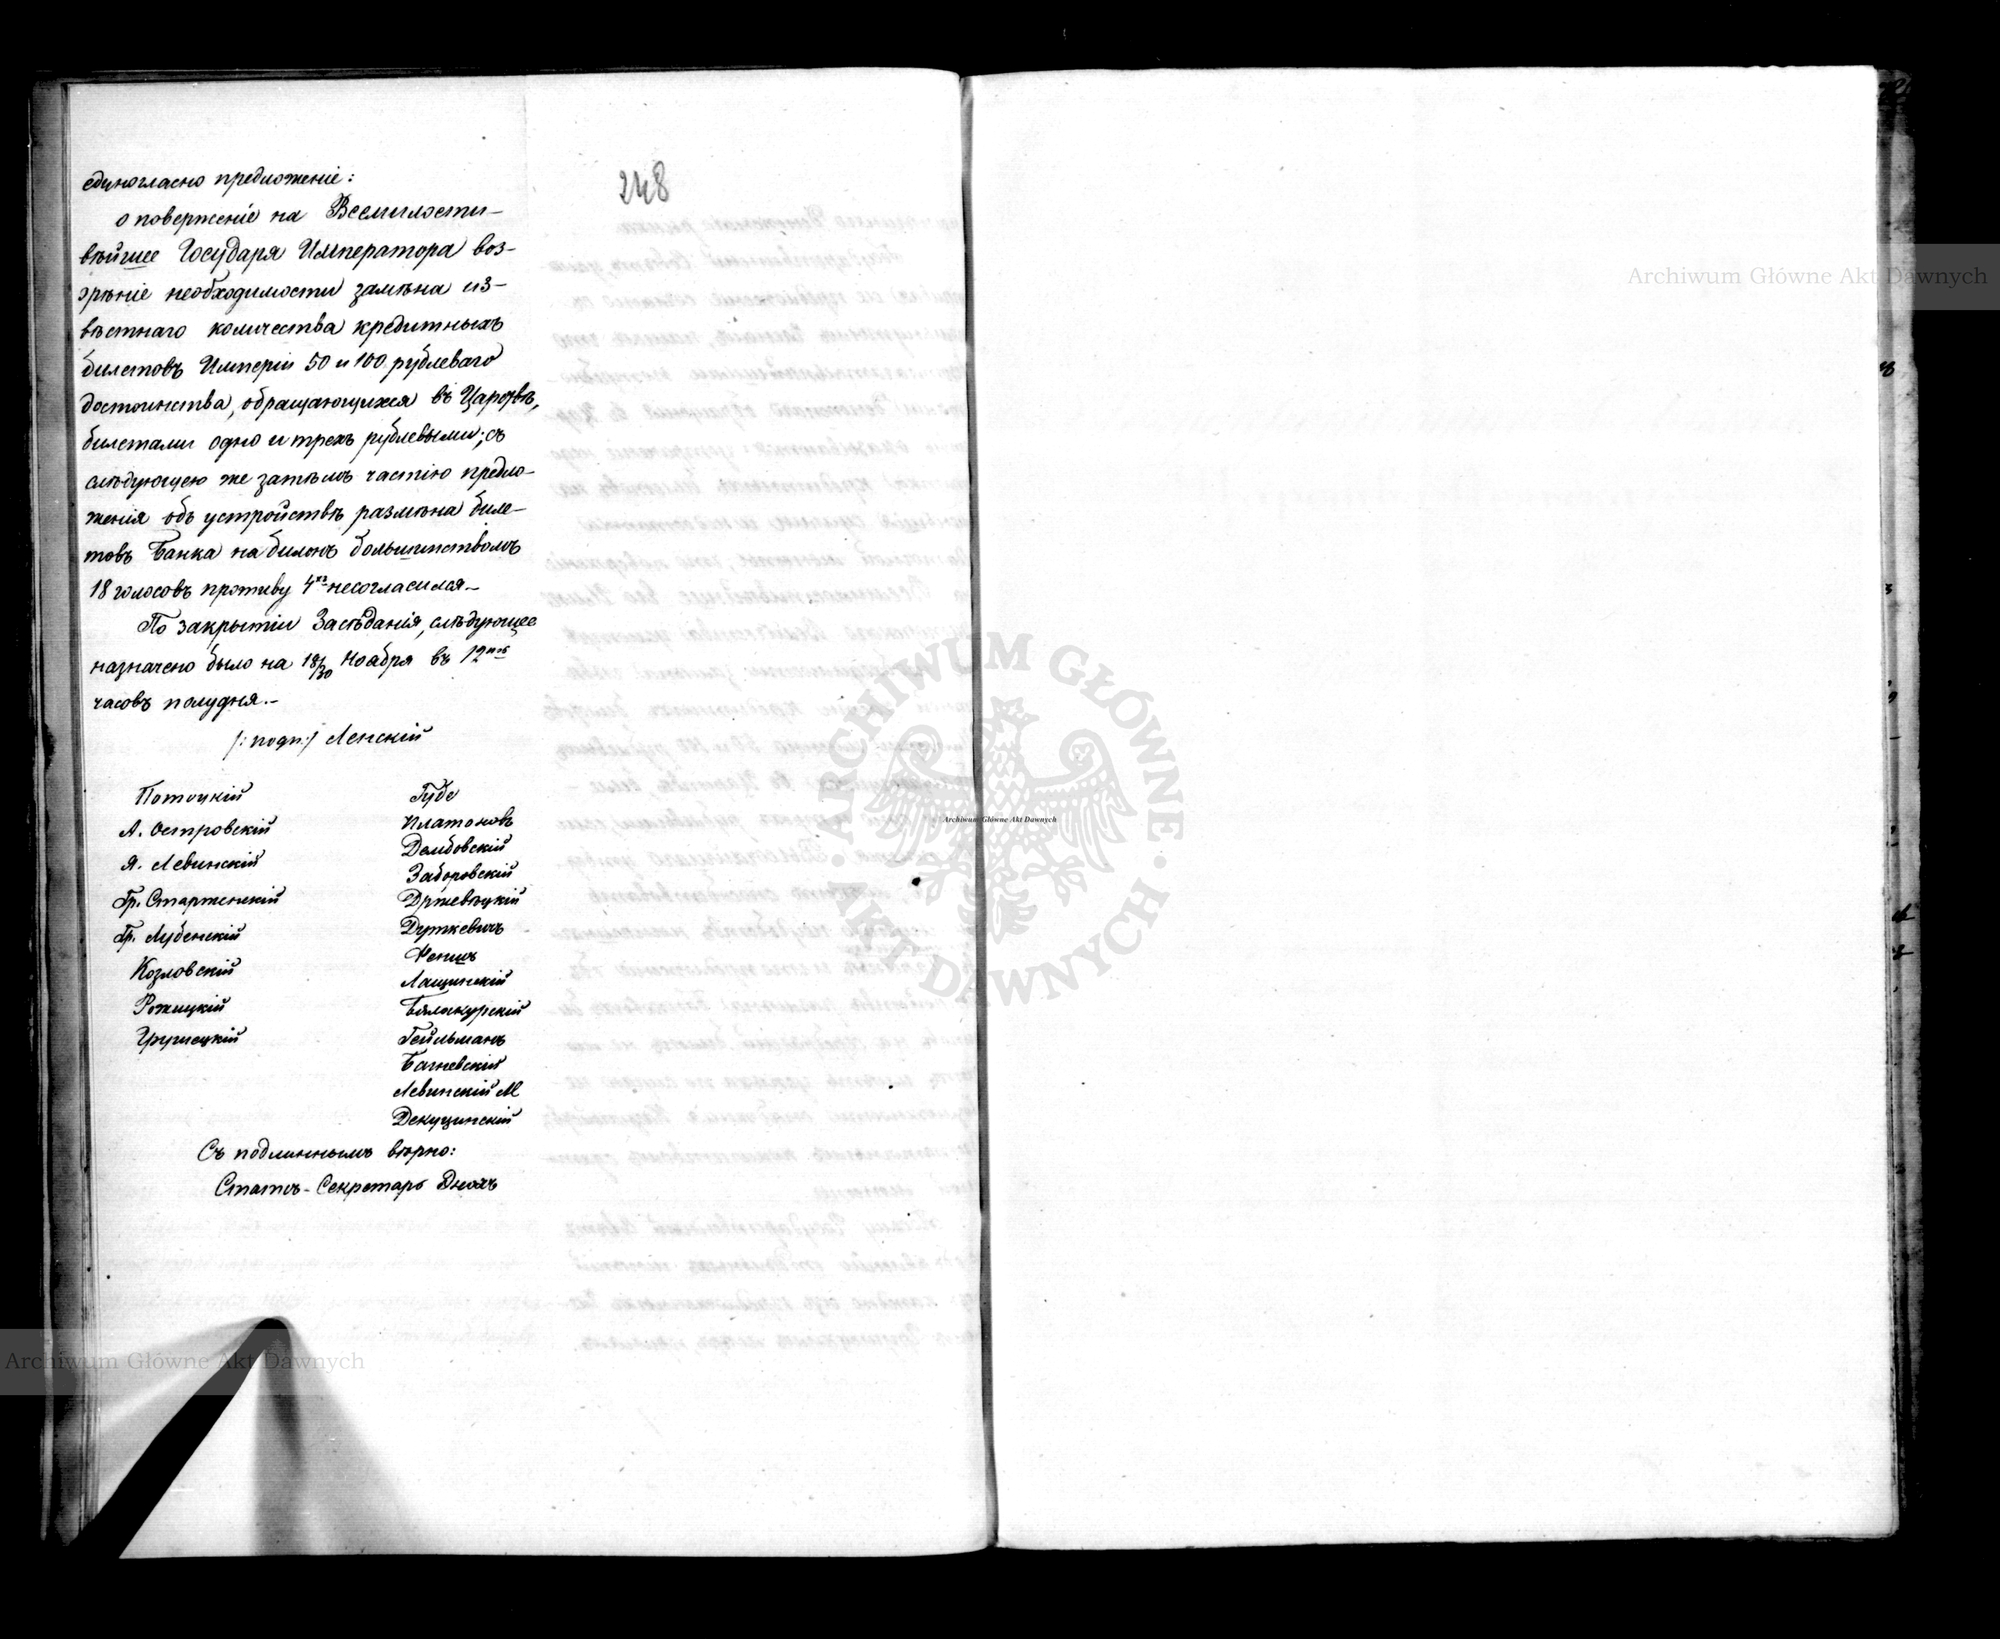 248
единогласно предложеніе:
о повержение на Всемилости-
вѣйшее Государя Императора воз-
зрѣніе необходимости замѣна из-
вѣстнаго количества кредитныхъ
билетовъ Имперіи 50 и 100 рублеваго
достоинства, обращающихся въ Царствѣ,
билетами одно и трехъ рублевыми; съ
слѣдующею же затѣмъ частію предло-
женія объ устройствѣ размѣна биле-
товъ Банка на билонъ большинствомъ
18 голосовъ противу 4хъ несогласился.-
По закрытіи Засѣданія, слѣдующее
назначено было на 18/30 Ноября въ 12ть
часовъ полудня.-
/:подп:/ Ленскій
Потоцкій
А. Островскій
Я. Левинскій
Гр. Старженскій
Гр. Лубенскій
Козловскій
Рожицкій
Грушецкій
Губе
Платоновъ
Дембовскій
Заборовскій
Држевѣцкій
Дуткевичъ
Феншъ
Лащинскій
Бялоскурскій
Гейльманъ
Багневскій
Левинскій М
Декуцинскій
Съ подлиннымъ вѣрно:
Статсъ-Секретарь
Archiwum Główne Akt Dawnych
Archiwum Główne Akt Dawnych
Archiwum Główne Akt Dawnych
ARCHIWUM GŁÓWNE · AKT DAWNYCH ·